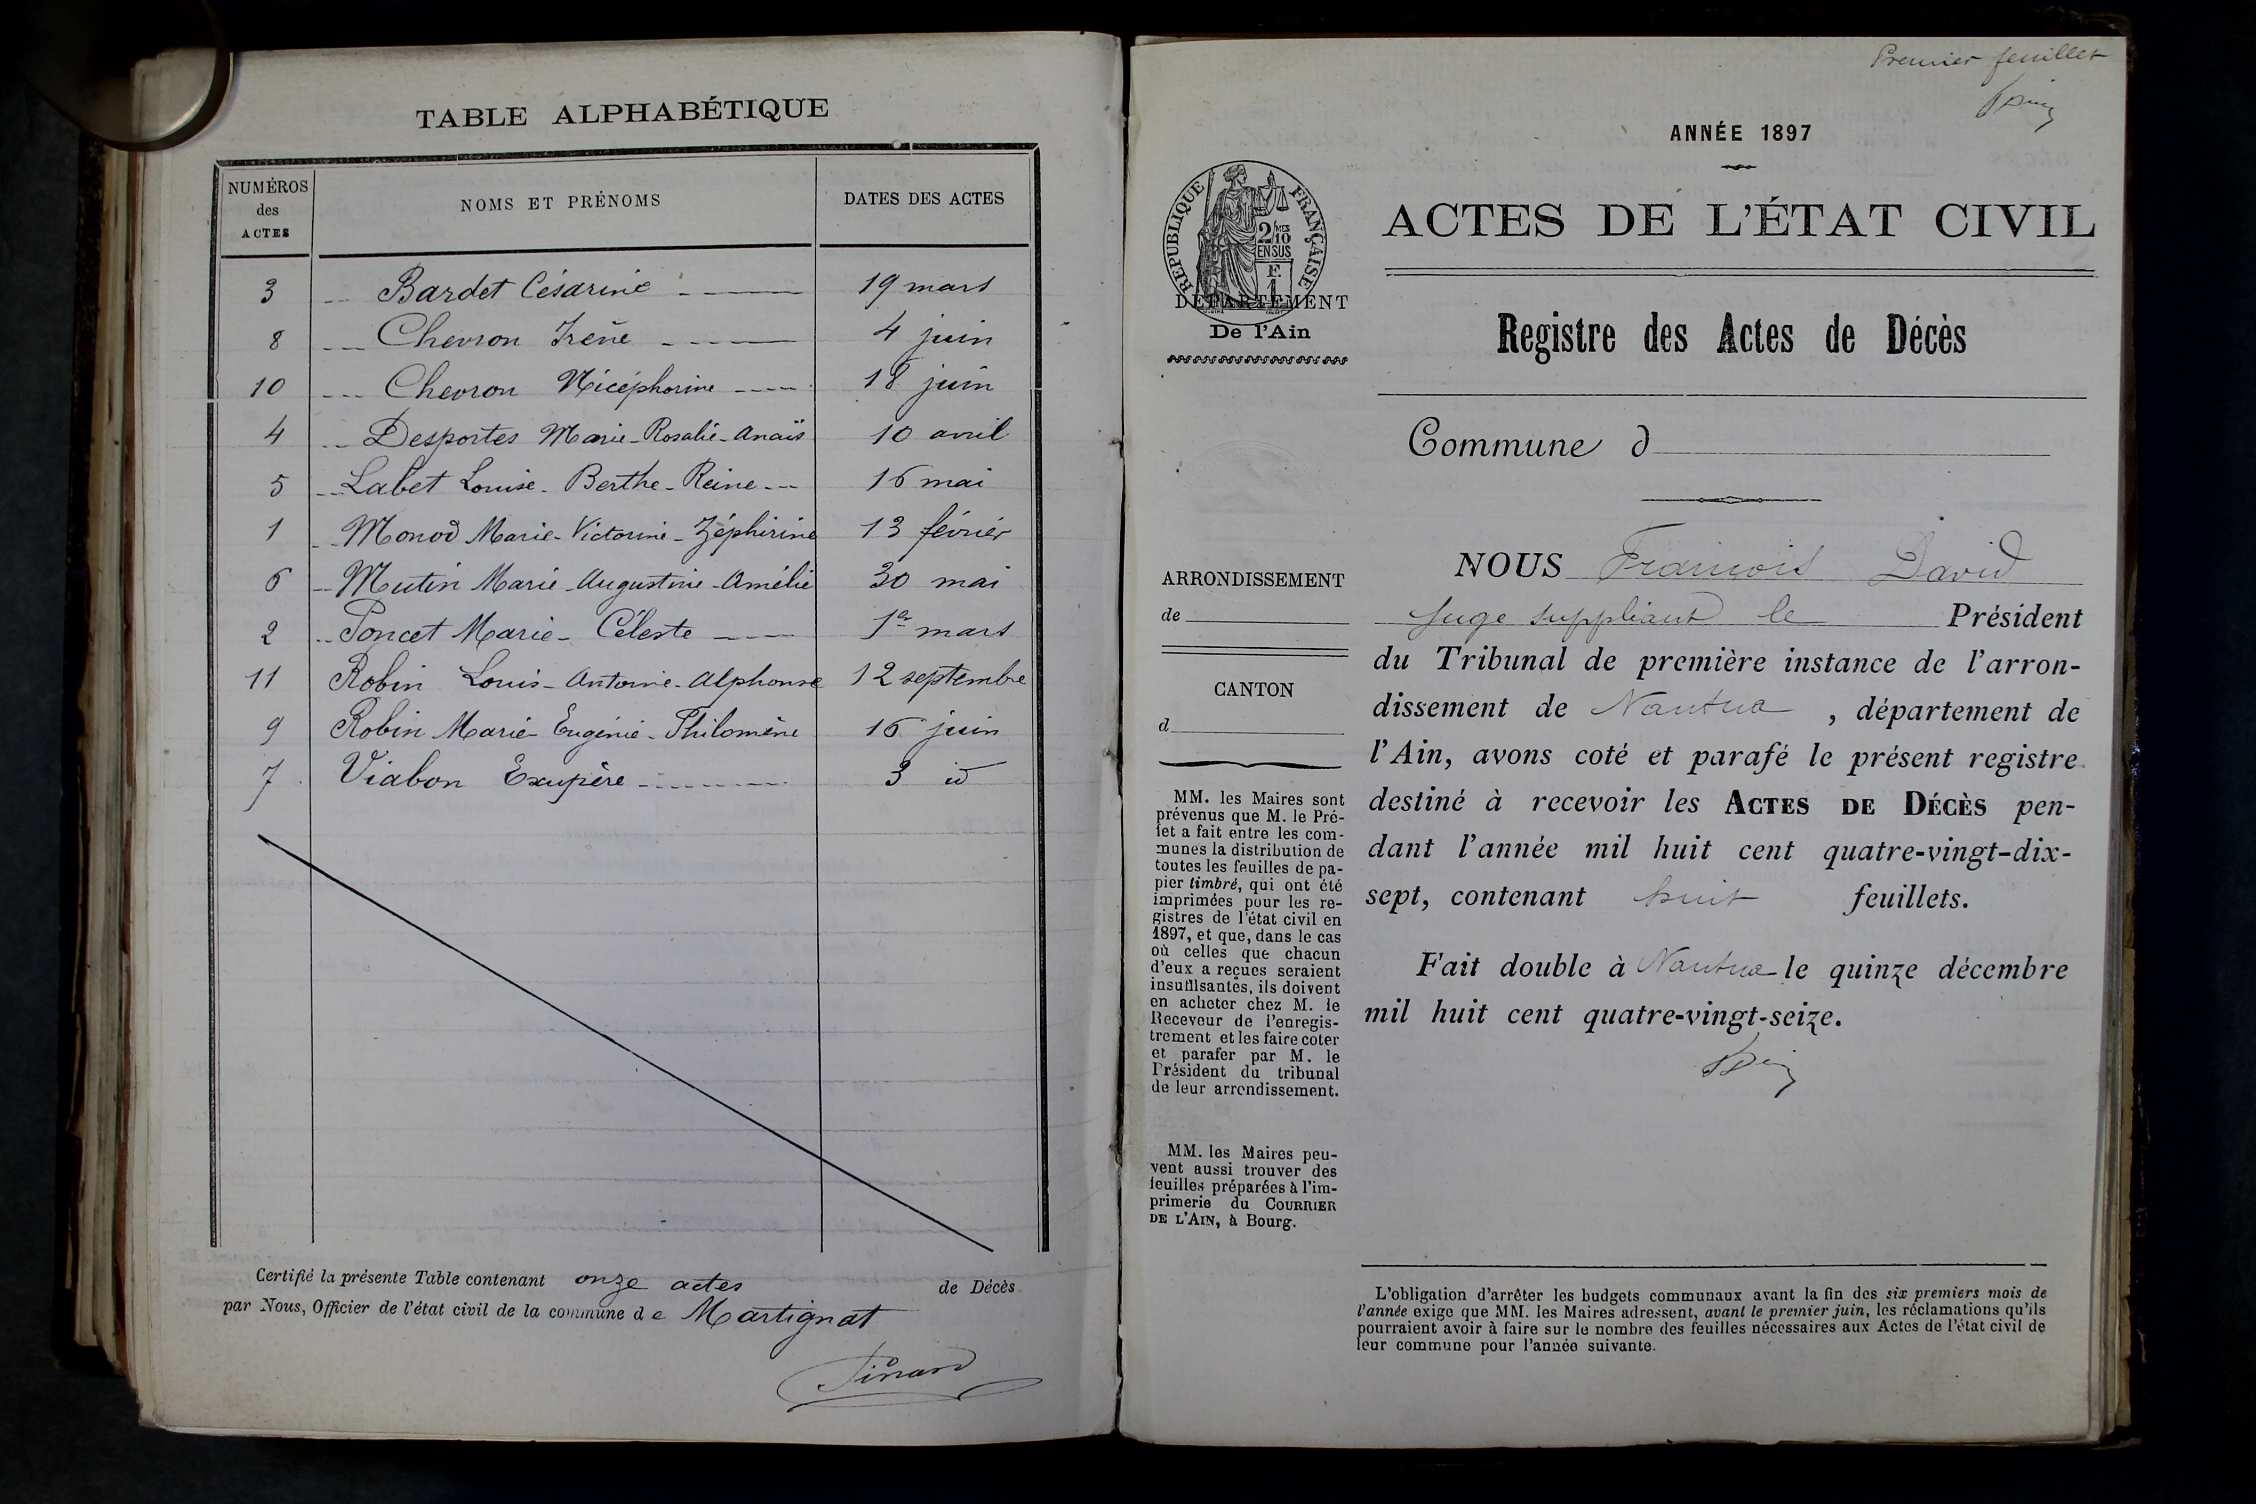 TABLE ALPHABÉTIQUE
NUMÉROS des ACTES
NOMS ET PRÉNOMS
DATES DES ACTES
3 Bardet Césarine 19 mars
8 Chevron Irène 4 juin
10 Chevron Nicéphorine 18 juin
4 Desportes Marie-Rosalie-Anaïs 10 avril
5 Labet Louise-Berthe-Reine 16 mai
1 Monod Marie-Victorine-Zéphirine 13 février
6 Mutin Marie-Augustine-Amélie 30 mai
2 Poncet Marie-Céleste 1er mars
11 Robin Louis-Antoine-Alphonse 12 septembre
9 Robin Marie-Eugénie-Philomène 16 juin
7 Viabon Exupère 3 id
Certifié la présente Table contenant onze actes de Décès
par Nous, Officier de l'état civil de la commune de Martignat
Pinard
Premier feuillet
ANNÉE 1897
RÉPUBLIQUE FRANÇAISE
2/10mes
EN SUS
F.
1
DÉPARTEMENT
De l'Ain
ACTES DE L'ÉTAT CIVIL
Registre des Actes de Décès
Commune d
ARRONDISSEMENT
de
CANTON
d
MM. les Maires sont
prévenus que M. le Pré-
fet a fait entre les com-
munes la distribution de
toutes les feuilles de pa-
pier timbré, qui ont été
imprimées pour les re-
gistres de l'état civil en
1897, et que, dans le cas
où celles que chacun
d'eux a reçues seraient
insuffisantes, ils doivent
en acheter chez M. le
Receveur de l'enregis-
trement et les faire coter
et parafer par M. le
Président du tribunal
de leur arrondissement.
MM. les Maires peu-
vent aussi trouver des
feuilles préparées à l'im-
primerie du COURRIER
DE L'AIN, à Bourg.
NOUS François David
Juge suppléant le Président
du Tribunal de première instance de l'arron-
dissement de Nantua, département de
l'Ain, avons coté et parafé le présent registre
destiné à recevoir les ACTES DE DÉCÈS pen-
dant l'année mil huit cent quatre-vingt-dix-
sept, contenant huit feuillets.
Fait double à Nantua le quinze décembre
mil huit cent quatre-vingt-seize.
L'obligation d'arrêter les budgets communaux avant la fin des six premiers mois de
l'année exige que MM. les Maires adressent, avant le premier juin, les réclamations qu'ils
pourraient avoir à faire sur le nombre des feuilles nécessaires aux Actes de l'état civil de
leur commune pour l'année suivante.